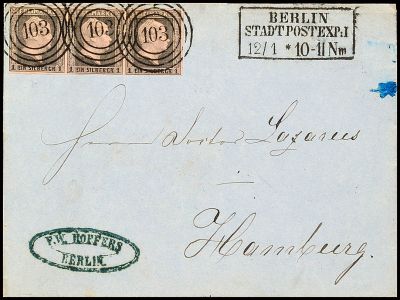 103 103 103
1 EIN SILBERGR. 1 1 EIN SILBERGR. 1 1 EIN SILBERGR. 1
BERLIN
STADTPOSTEXP:I
12/1 * 10-11 Nm
Herrn Doctor Lazarus
in
Hamburg.
F.W. HOPFERS
BERLIN.